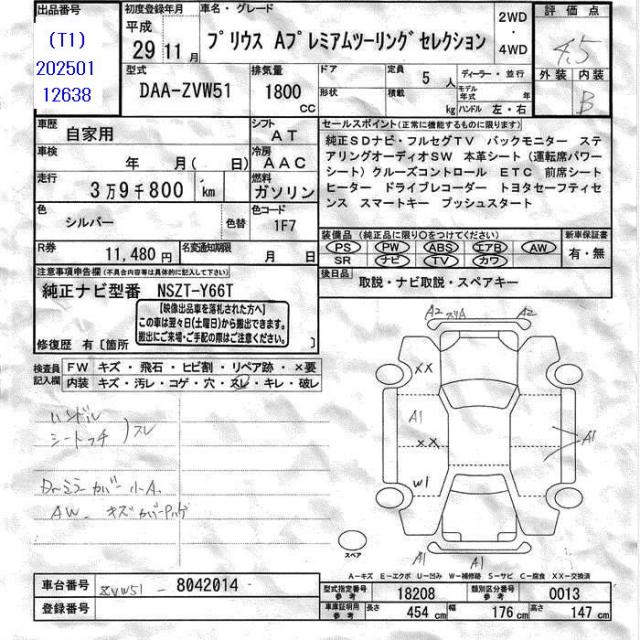 出品番号
(T1)
202501
12638
初度登録年月
平成
29年11月
車名・グレード
プリウス Aプレミアムツーリングセレクション
2WD
・
4WD
評価点
4.5
外装 内装
B
型式
DAA-ZVW51
排気量
1800
cc
ドア
形状
定員 5 人
積載 kg
ディーラー・並行
モデル年式 年
ハンドル 左・右
車歴
自家用
シフト
AT
車検
年 月( 日)
冷房
AAC
走行
3万9千800 km
燃料
ガソリン
色
シルバー
色替
色コード
1F7
R券
11,480円
名変通知期限
月 日
セールスポイント(正常に機能するものに限ります)
純正SDナビ・フルセグTV バックモニター ステ
アリングオーディオSW 本革シート(運転席パワー
シート)クルーズコントロール ETC 前席シート
ヒーター ドライブレコーダー トヨタセーフティセ
ンス スマートキー プッシュスタート
装備品(純正品に限り○をつけてください)
PS PW ABS エアB AW
SR ナビ TV カワ
新車保証書
有・無
後日品
取説・ナビ取説・スペアキー
注意事項申告欄(不具合内容等は具体的に記入して下さい)
純正ナビ型番 NSZT-Y66T
【映像出品車を落札された方へ】
この車は翌々日(土曜日)から搬出できます。
搬出にご来場・ご手配の際はご注意ください。
修復歴 有〔箇所 〕
検査員
記入欄
FW キズ・飛石・ヒビ割・リペア跡・×要
内装 キズ・汚レ・コゲ・穴・スレ・キレ・破レ
ハンドル
シートつチ )スレ
Drミラーカバー小A.
AW. キズ
A2 スリA A2
XX
A1
XX
W1
A1
A1
A1
スペア
A-キズ E-エクボ U-凹み W-補修跡 S-サビ C-腐食 XX-交換済
車台番号
ZVW51 - 8042014
登録番号
型式指定番号
参考
18208
類別区分番号
参考
0013
車庫証明用
参考
長さ 454 cm 幅 176 cm 高さ 147 cm